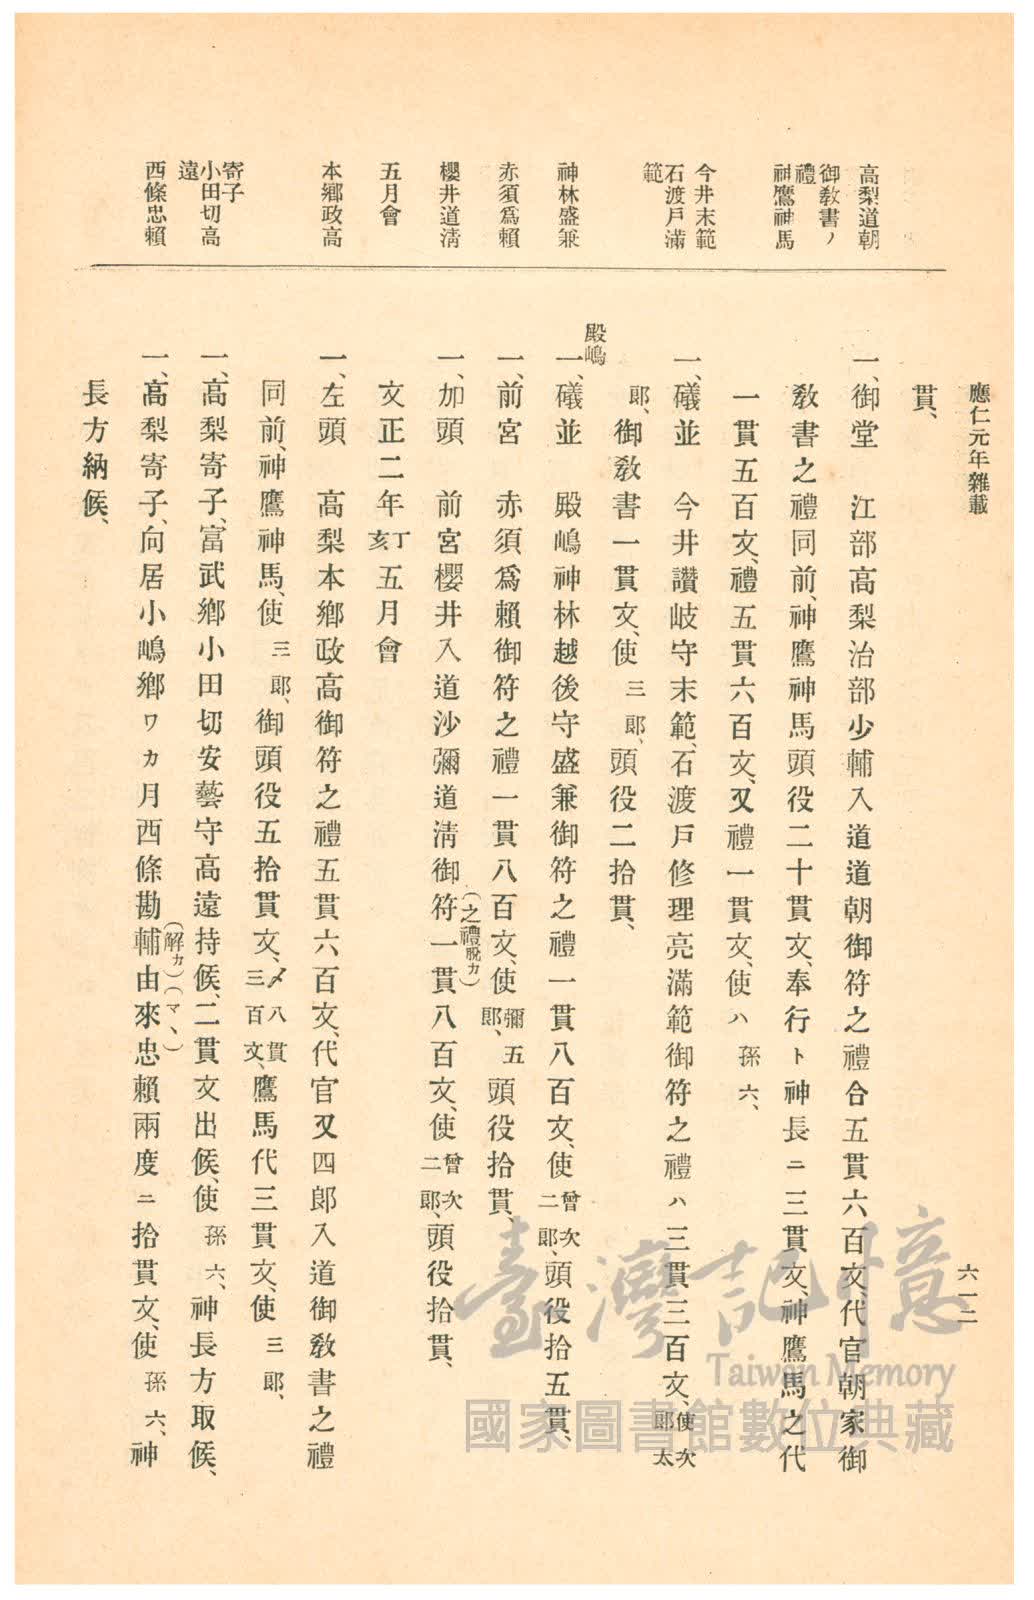 應仁元年雜載
六一二
高梨道朝
御敎書ノ
禮
神鷹神馬
今井末範
石渡戸滿
範
神林盛兼
赤須爲賴
櫻井道淸
五月會
本鄕政高
寄子
小田切高
遠
西條忠賴
貫、
一、御堂　江部高梨治部少輔入道道朝御符之禮合五貫六百文、代官朝家御
敎書之禮同前、神鷹神馬頭役二十貫文、奉行ト神長ニ三貫文、神鷹馬之代
一貫五百文、禮五貫六百文、又禮一貫文、使ハ孫六、
一、礒並　今井讃岐守末範、石渡戸修理亮滿範御符之禮ハ三貫三百文、使次
郎太
郎、御敎書一貫文、使三郎、頭役二拾貫、
殿嶋
一、礒並　殿嶋神林越後守盛兼御符之禮一貫八百文、使曾次
二郎、頭役拾五貫、
一、前宮　赤須爲賴御符之禮一貫八百文、使彌五
郎、頭役拾貫、
(之禮脫カ)
一、加頭　前宮櫻井入道沙彌道淸御符一貫八百文、使曾次
二郎、頭役拾貫、
文正二年丁
亥五月會
一、左頭　高梨本鄕政高御符之禮五貫六百文、代官又四郎入道御敎書之禮
同前、神鷹神馬、使三郎、御頭役五拾貫文、〆八貫
三百文、鷹馬代三貫文、使三郎、
一、高梨寄子、富武鄕小田切安藝守高遠持候、二貫文出候、使孫六、神長方取候、
(解カ)(マヽ)
一、高梨寄子、向居小嶋鄕ワカ月西條勘輔由來忠賴兩度ニ拾貫文、使孫六、神
長方納候、
臺灣記憶
Taiwan Memory
國家圖書館數位典藏